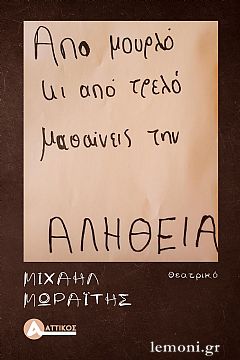 Απο μουρλό
κι από τρελό
μαθαίνεις την
ΑΛΗΘΕΙΑ
ΜΙΧΑΗΛ
ΜΩΡΑΪΤΗΣ
θεατρικό
ΑΤΤΙΚΟΣ
lemoni.gr